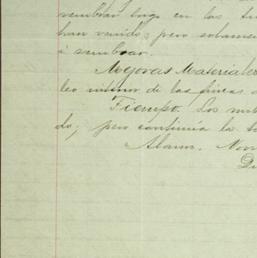 sembrar luego en las
han venido; pero solamen
á sembrar.
Mejoras Materiales
leo interior de las fincas d
Tiempo. Los nub
do; pero continúa la
Alamos. Nov